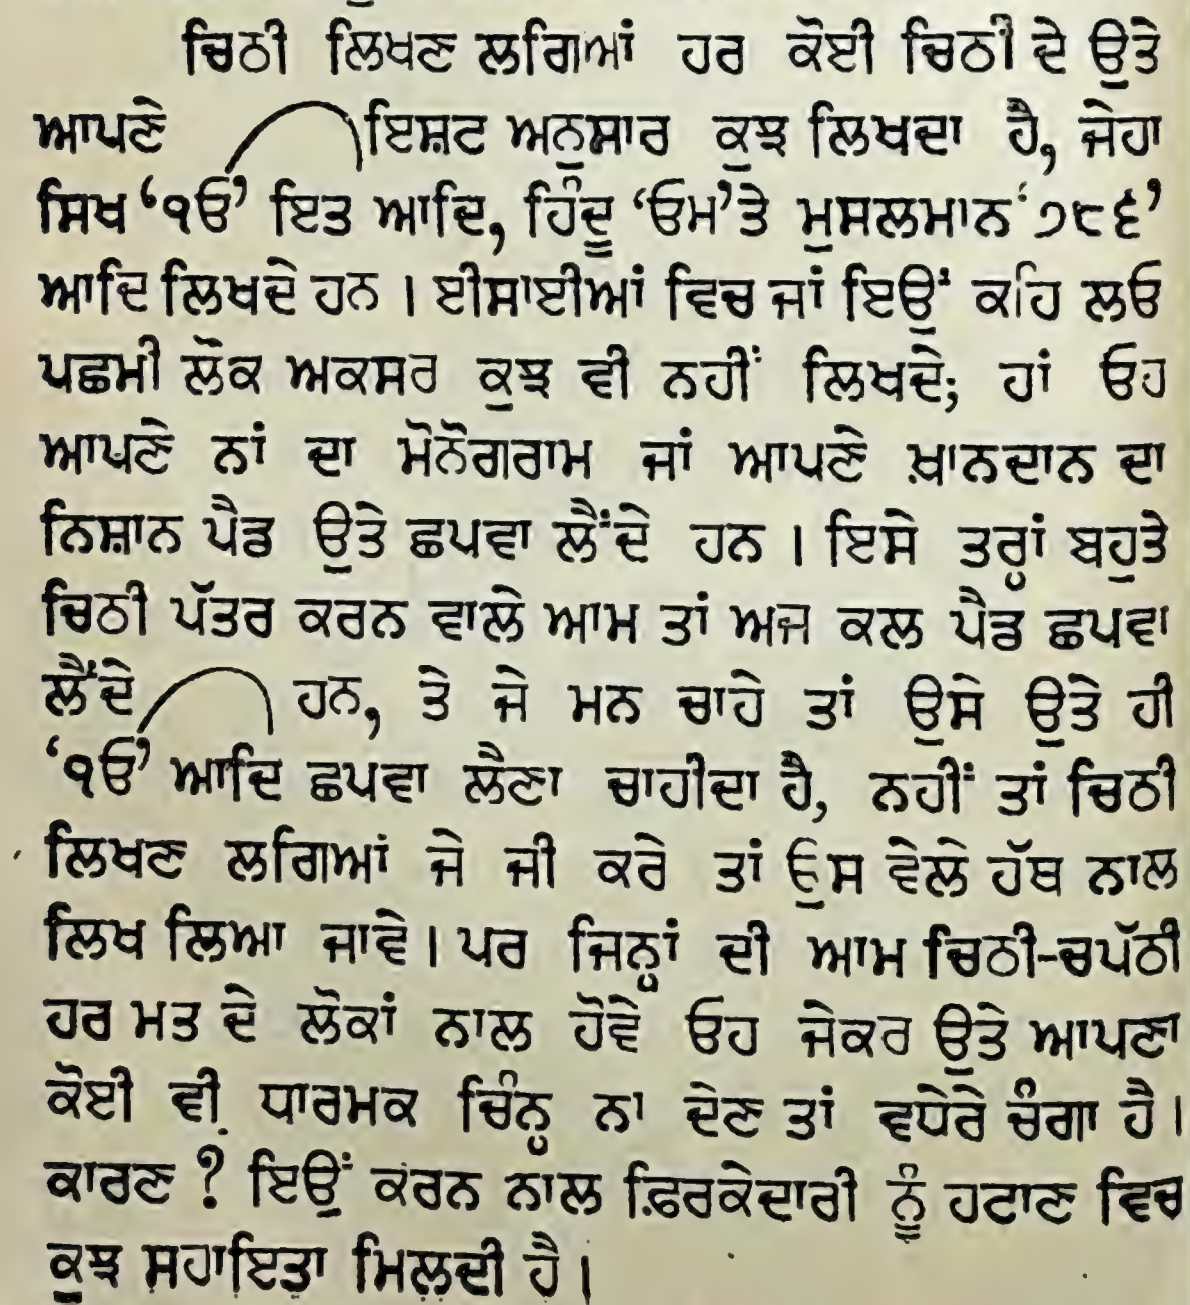 ਚਿਠੀ ਲਿਖਣ ਲਗਿਆਂ ਹਰ ਕੋਈ ਚਿਠੀ ਦੇ ਉਤੇ
ਆਪਣੇ ਇਸ਼ਟ ਅਨੁਸਾਰ ਕੁਝ ਲਿਖਦਾ ਹੈ, ਜੇਹਾ
ਸਿਖ ‘੧ਓ’ ਇਤ ਆਦਿ, ਹਿੰਦੂ ‘ਓਮ’ਤੇ ਮੁਸਲਮਾਨ ‘੭੮੬’
ਆਦਿ ਲਿਖਦੇ ਹਨ । ਈਸਾਈਆਂ ਵਿਚ ਜਾਂ ਇਉਂ ਕਹਿ ਲਓ
ਪਛਮੀ ਲੋਕ ਅਕਸਰ ਕੁਝ ਵੀ ਨਹੀਂ ਲਿਖਦੇ; ਹਾਂ ਓਹ
ਆਪਣੇ ਨਾਂ ਦਾ ਮੋਨੋਗਰਾਮ ਜਾਂ ਆਪਣੇ ਖ਼ਾਨਦਾਨ ਦਾ
ਨਿਸ਼ਾਨ ਪੈਡ ਉਤੇ ਛਪਵਾ ਲੈਂਦੇ ਹਨ । ਇਸੇ ਤਰ੍ਹਾਂ ਬਹੁਤੇ
ਚਿਠੀ ਪੱਤਰ ਕਰਨ ਵਾਲੇ ਆਮ ਤਾਂ ਅਜ ਕਲ ਪੈਡ ਛਪਵਾ
ਲੈਂਦੇ ਹਨ, ਤੇ ਜੇ ਮਨ ਚਾਹੇ ਤਾਂ ਉਸੇ ਉਤੇ ਹੀ
‘੧ਓ’ ਆਦਿ ਛਪਵਾ ਲੈਣਾ ਚਾਹੀਦਾ ਹੈ, ਨਹੀਂ ਤਾਂ ਚਿਠੀ
ਲਿਖਣ ਲਗਿਆਂ ਜੇ ਜੀ ਕਰੇ ਤਾਂ ਉਸ ਵੇਲੇ ਹੱਥ ਨਾਲ
ਲਿਖ ਲਿਆ ਜਾਵੇ । ਪਰ ਜਿਨ੍ਹਾਂ ਦੀ ਆਮ ਚਿਠੀ-ਚਪੱਠੀ
ਹਰ ਮਤ ਦੇ ਲੋਕਾਂ ਨਾਲ ਹੋਵੇ ਓਹ ਜੇਕਰ ਉਤੇ ਆਪਣਾ
ਕੋਈ ਵੀ ਧਾਰਮਕ ਚਿੰਨ੍ਹ ਨਾ ਦੇਣ ਤਾਂ ਵਧੇਰੇ ਚੰਗਾ ਹੈ ।
ਕਾਰਣ ? ਇਉਂ ਕਰਨ ਨਾਲ ਫ਼ਿਰਕੇਦਾਰੀ ਨੂੰ ਹਟਾਣ ਵਿਚ
ਕੁਝ ਸਹਾਇਤਾ ਮਿਲਦੀ ਹੈ ।